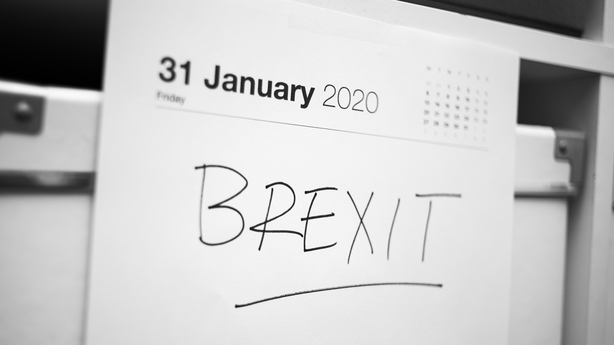 31 January 2020
Friday
BREXIT